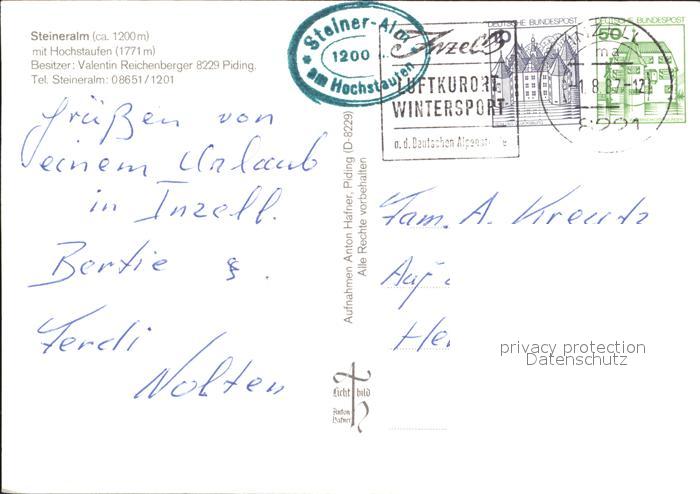 Steineralm (ca. 1200 m)
mit Hochstaufen (1771 m)
Besitzer: Valentin Reichenberger 8229 Piding.
Tel. Steineralm: 08651/1201
Steiner-Alm
1200
am Hochstaufen
Inzell
LUFTKURORT
WINTERSPORT
a.d. Deutschen Alpenstraße
DEUTSCHE BUNDESPOST
DEUTSCHE BUNDESPOST
50
8221
Grüßen von
einem Urlaub
in Inzell.
Bertie &.
Ferdi
Nolten
Aufnahmen Anton Hafner, Piding (D-8229)
Alle Rechte vorbehalten
Licht bild
Anton
Hafner
Fam. A. Kreutz
Auf
He
privacy protection
Datenschutz